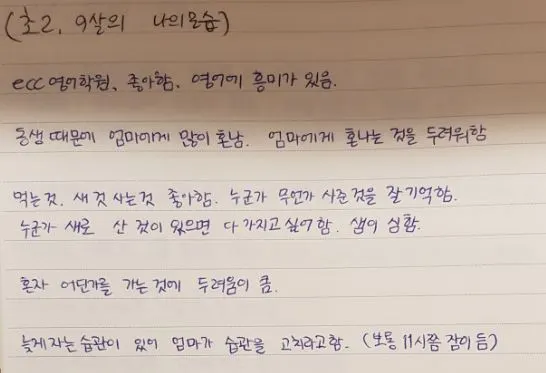 (초2, 9살의 나의모습)
ecc 영어학원, 좋아함. 영어에 흥미가 있음.
동생 때문에 엄마에게 많이 혼남. 엄마에게 혼나는 것을 두려워함
먹는것, 새것 사는것 좋아함. 누군가 무언가 사준것을 잘 기억함.
누군가 새로 산 것이 있으면 다 가지고 싶어함. 샘이 심함.
혼자 어딘가를 가는것에 두려움이 큼.
늦게 자는 습관이 있어 엄마가 습관을 고치라고함. (보통 11시쯤 잠이 듬)